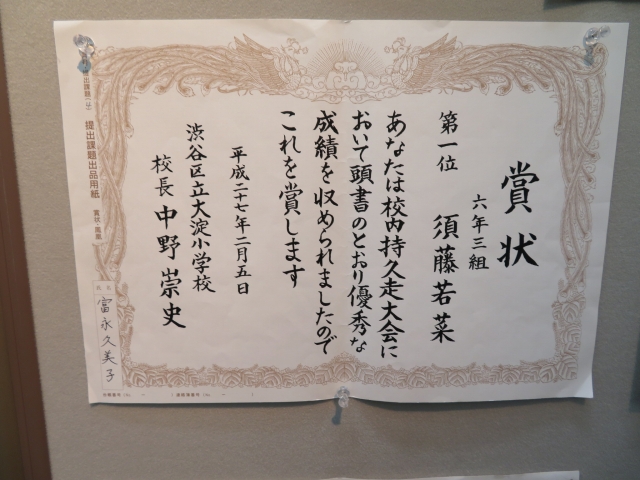 賞状
六年三組
第一位 須藤若菜
あなたは校内持久走大会に
おいて頭書のとおり優秀な
成績を収められましたので
これを賞します
平成二十七年二月五日
渋谷区立大淀小学校
校長 中野崇史
提出課題出品用紙 賞状・鳳凰
氏名
富永久美子